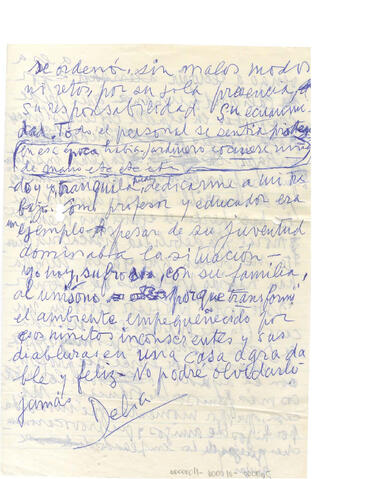 se ordenó, sin malos modos
ni retos, por su sola presencia,
su responsabilidad su ecuanimi-
dad. Todo el personal se sentía
(en esa época había jardinero cocinera
de mano etc etc etc
do y tranquila dedicarme a mi tra
bajo. Como profesor y educador era
un ejemplo. A pesar de su juventud
dominaba la situación—
yo hoy, sufro con su familia,
al unísono porque transformó
el ambiente empequeñecido por
niñitos inconscientes y sus
diabluras en una casa agrada
ble y feliz— No podré olvidarlo
jamás Delia